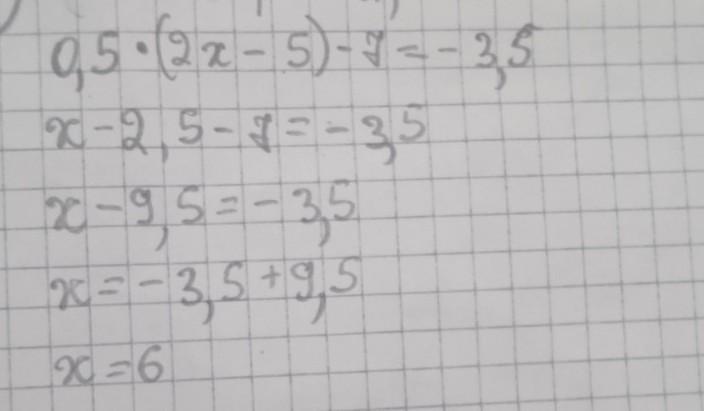 0,5·(2x-5)-7=-3,5
x-2,5-7=-3,5
x-9,5=-3,5
x=-3,5+9,5
x=6